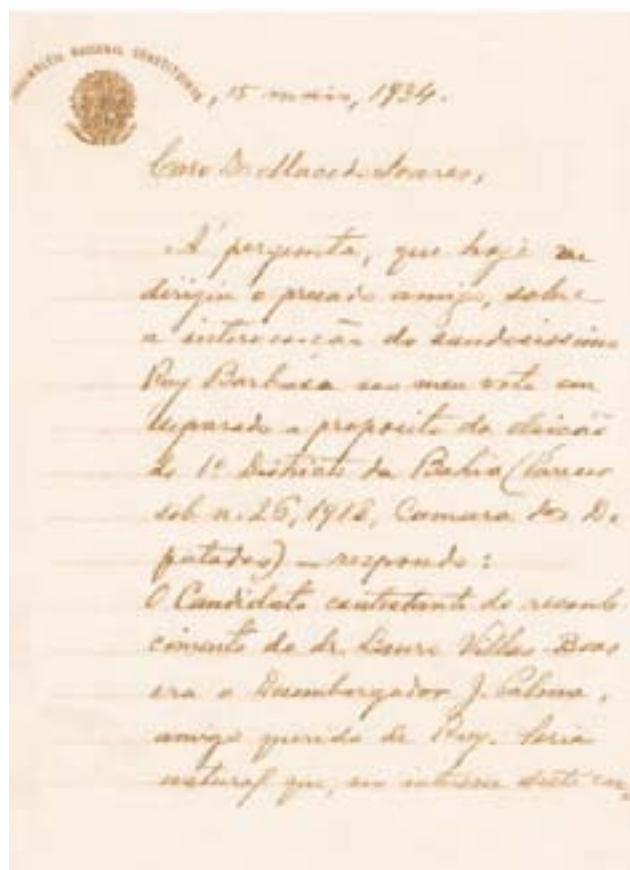 ASSEMBLÉA NACIONAL CONSTITUINTE
, 15 maio, 1934.
Caro Dr. Macedo Soares,
Á pergunta, que hoje me
dirigiu o presado amigo, sobre
a intervenção do saudosissimo
Ruy Barbosa no meu voto em
separado a proposito da eleição
do 1º Districto da Bahia (Parecer
sob n. 26, 1916, Camara dos De
putados) – respondo:
O Candidato contestante do reconhe
cimento do dr. Lauro Villas Boas
era o Desembargador J. Palma,
amigo querido de Ruy. Seria
natural que, no interesse